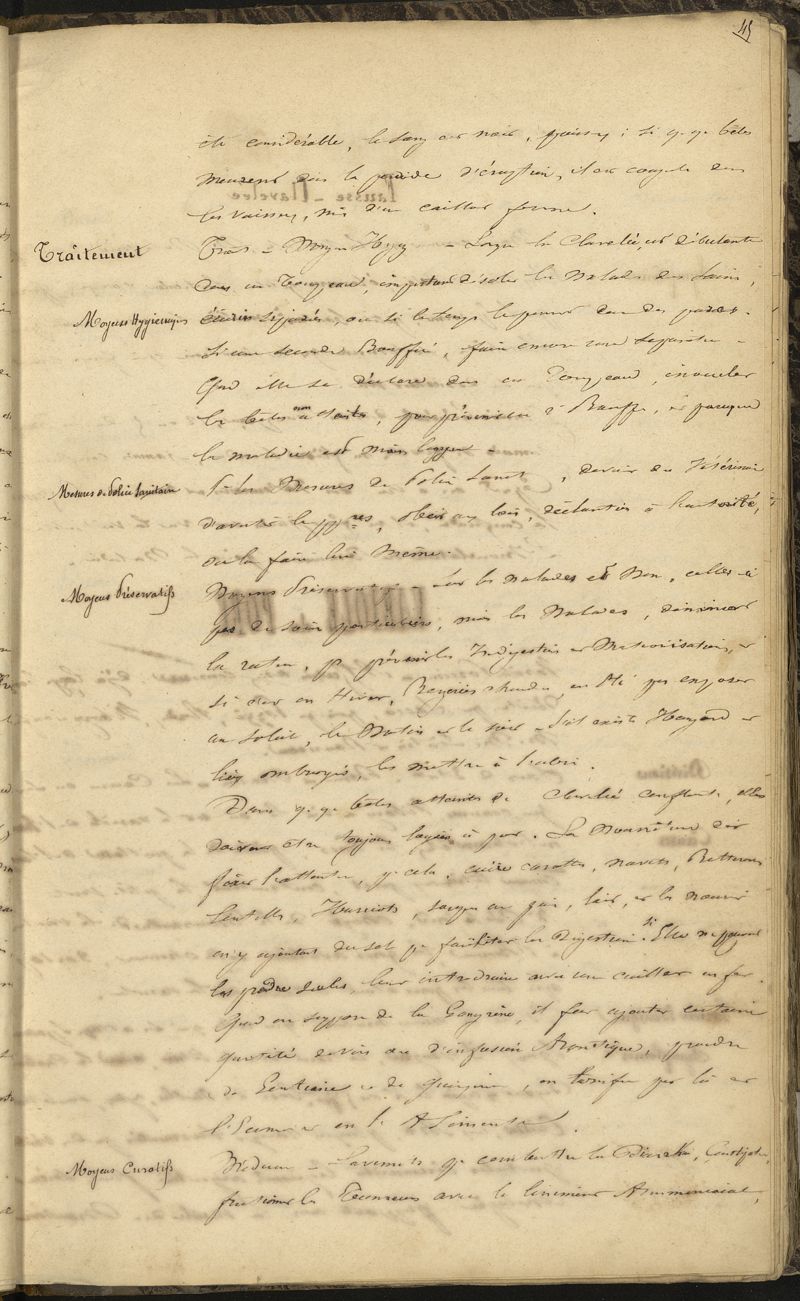 45
été considérable, le sang est noir, épaissi ; si qq bêtes
meurent dans la période d'éruption, il est coagulé dans
les vaisseaux, mais d'un caillot ferme.
Traitement
Trait - Moyens Hyg - Lorsque la Clavelée est débutante
dans un Troupeau, important d'isoler les Malades des Sains,
Moyens Hygieniques
écuries séparées, ou si le temps le permet dans des parcs.
Si une seconde Bouffée, faire encore une séparation -
Quand elle se déclare dans un Troupeau, inoculer
les bêtes non atteintes, pour prévenir la 2e Bouffée, et parceque
la maladie est moins longue -
Mesures de Police Sanitaire
les Mesures de Police Sanit, devoir du Vétérinaire
d'avertir les ppres, obéir aux lois, déclaration à l'autorité,
ou la faire lui même.
Moyens Préservatifs
Moyens Préservatifs - sur les malades et Non, celles-ci
pas de soins particuliers, mais les Malades, diminuer
la ration, pr prévenir les Indigestions et Météorisations, et
si c'est en Hiver, Bergeries chaudes, en Eté pas exposer
au soleil, le Matin et le soir - s'il existe Hangard et
lieux ombragés, les mettre à l'abri.
Dans qq bêtes atteintes de Clavelée confluente, elles
doivent être toujours logées à part. La Nourriture doit
fixer l'attention, pr cela, cuire carottes, navets, Betteraves
Lentilles, Harricots, soupes au pain, lait, et les nourrir
en y ajoutant du sel pr faciliter les Digestions. Si Elles ne peuvent
les prendre seules, leur introduire avec une cuiller en fer.
Quand on soupçonne de la Gangrène, il faut ajouter certaine
quantité de vin ou d'infusion Aromatique, poudre
de Gentiane et de quinquina, on tonifie par là et
l'Estomac et les Aliments.
Moyens Curatifs
Médicam - Lavements pr combattre la Diarrhée, Constipation,
frictionner les Tumeurs avec le liniment Ammoniacal,